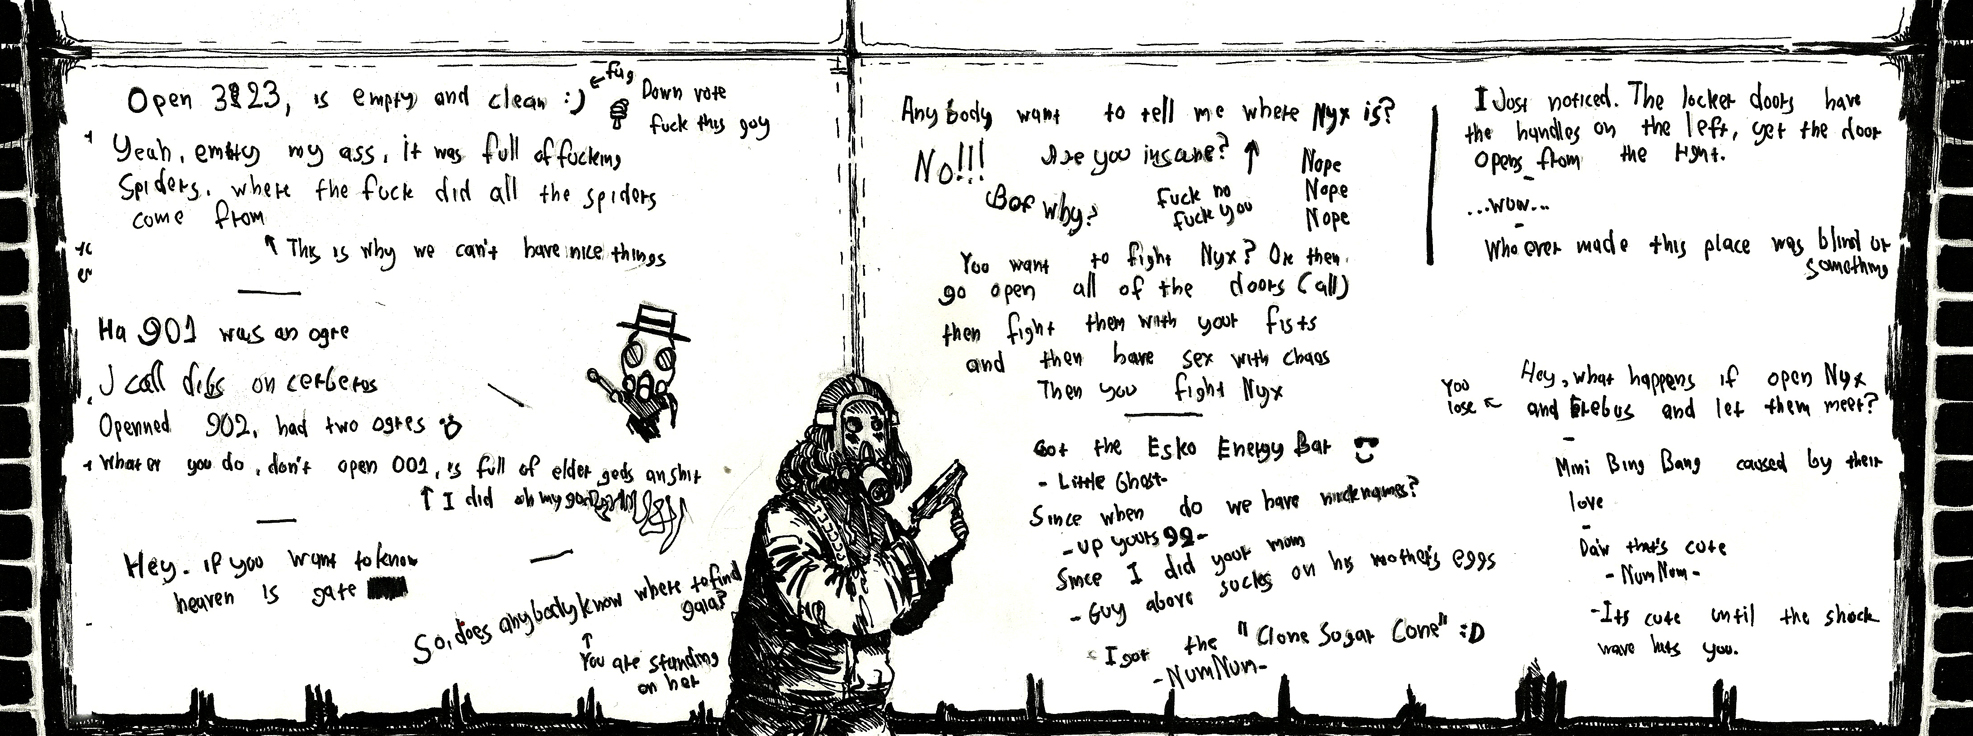 Open 3823, is empty and clean :)
← fug
Down vote
fuck this guy
Yeah, empty my ass, it was full of fucking
Spiders. where the fuck did all the spiders
come from
↑ This is why we can't have nice things
Ha 901 was an ogre
I call dibs on cerberos
Openned 902, had two ogres
What er you do, don't open 001, is full of elder gods an shit
↑ I did oh my god
Hey. if you want to know
heaven is gate
So, does anybody know where to find
gaia?
↑
You are standing
on her
Any body want to tell me where Nyx is?
No!!!
Are you insane? ↑
Nope
Nope
Nope
But why?
Fuck no
fuck you
You want to fight Nyx? Ok then.
go open all of the doors (all)
then fight them with your fists
and then have sex with chaos
Then you fight Nyx
Got the Esko Energy Bar
- Little Ghost-
Since when do we have nicknames?
-up yours 99-
Since I did your mom
- Guy above sucks on his mother's eggs
- I got the "Clone Sugar Cone" :D
-NumNum-
I Just noticed. The locker doors have
the handles on the left, yet the door
opens from the right.
-
...wow...
-
Who ever made this place was blind or
something
Hey, what happens if open Nyx
and Erebus and let them meet?
You
lose ←
-
Mini Bing Bang caused by their
love
-
Daw that's cute
- NumNum -
-Its cute until the shock
wave hits you.